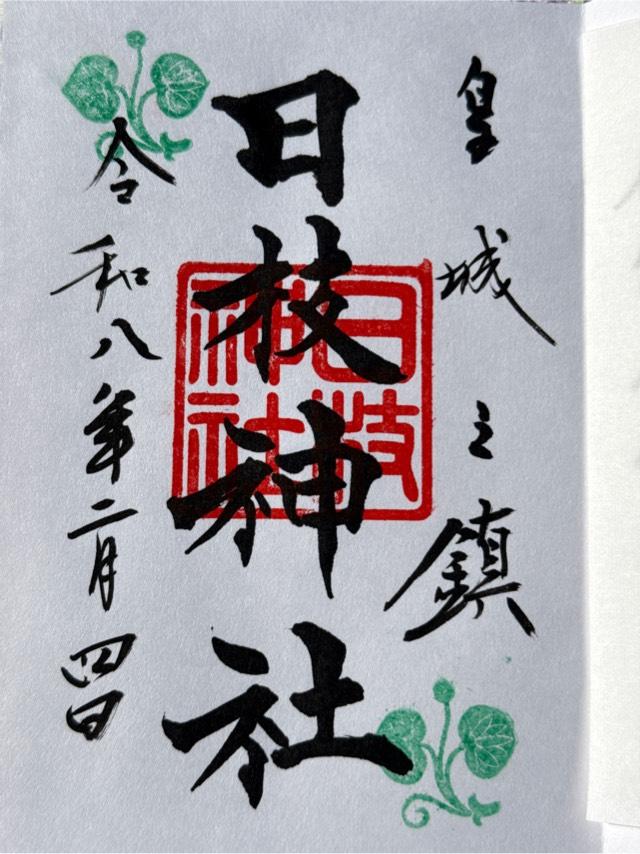 皇城之鎮
日枝神社
日枝神社
令和八年二月四日